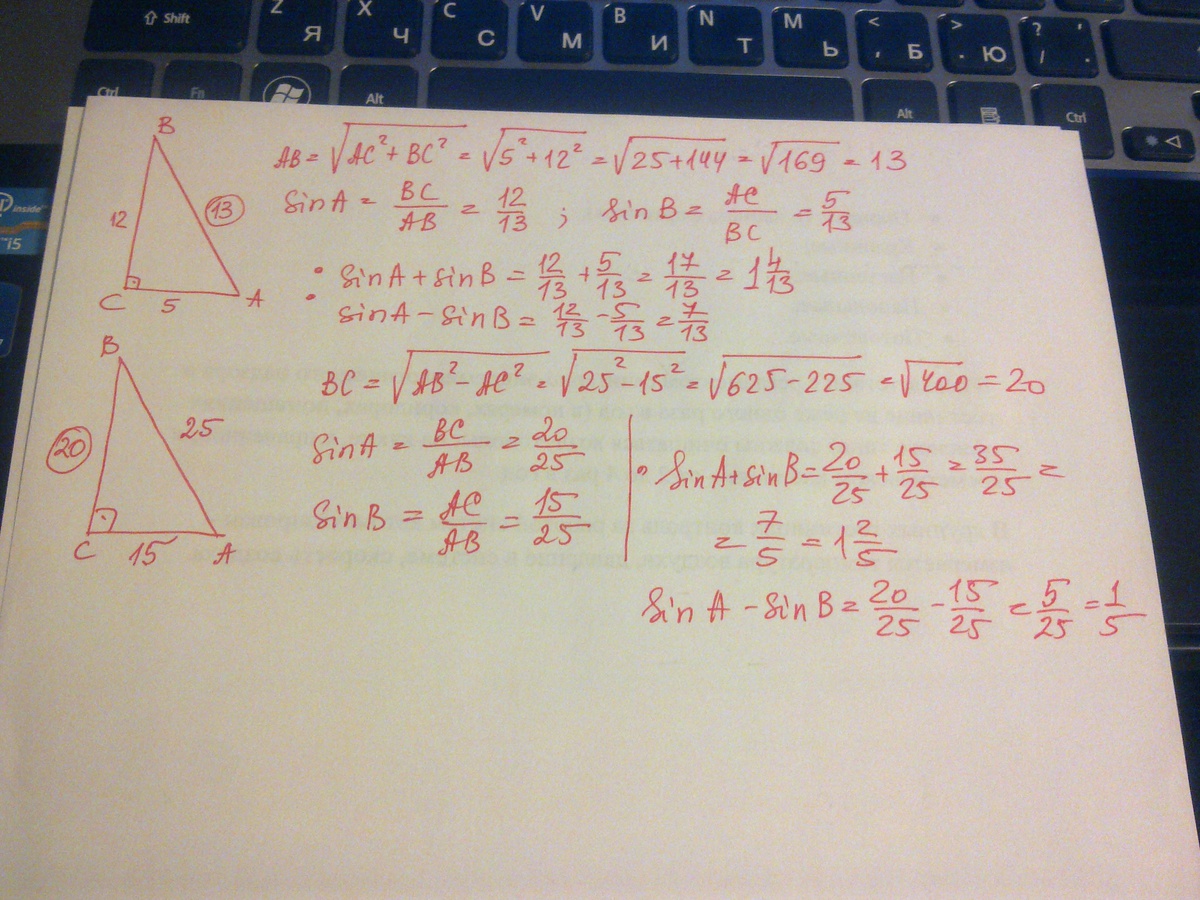 Shift Z Я X Ч C С V М B И N Т M Ь < , Б > . Ю ? / , .
Ctrl Fn Alt Alt Ctrl
inside
i5
B
12
13
C 5 A
AB = √AC² + BC² = √5² + 12² = √25 + 144 = √169 = 13
Sin A = BC/AB = 12/13 ; sin B = AC/BC = 5/13
• sin A + sin B = 12/13 + 5/13 = 17/13 = 1 4/13
• sin A − sin B = 12/13 − 5/13 = 7/13
B
20
25
C 15 A
BC = √AB² − AC² = √25² − 15² = √625 − 225 = √400 = 20
Sin A = BC/AB = 20/25
Sin B = AC/AB = 15/25
• Sin A + sin B = 20/25 + 15/25 = 35/25 =
= 7/5 = 1 2/5
Sin A − Sin B = 20/25 − 15/25 = 5/25 = 1/5